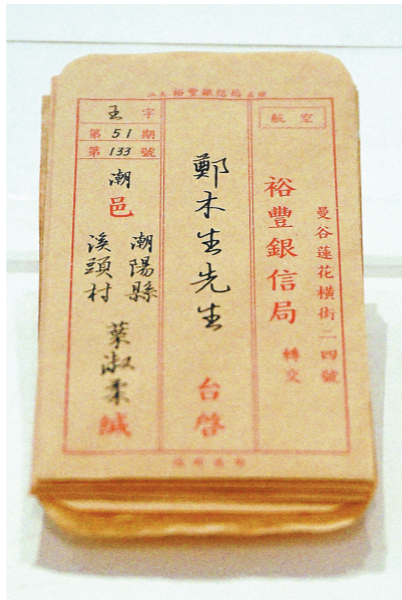 裕豐銀信局
航空
曼谷蓮花橫街二四號
裕豐銀信局 轉交
鄭木生先生 台啓
玉字
第51期
第133號
潮邑
潮陽縣
溪頭村
葉淑柔緘